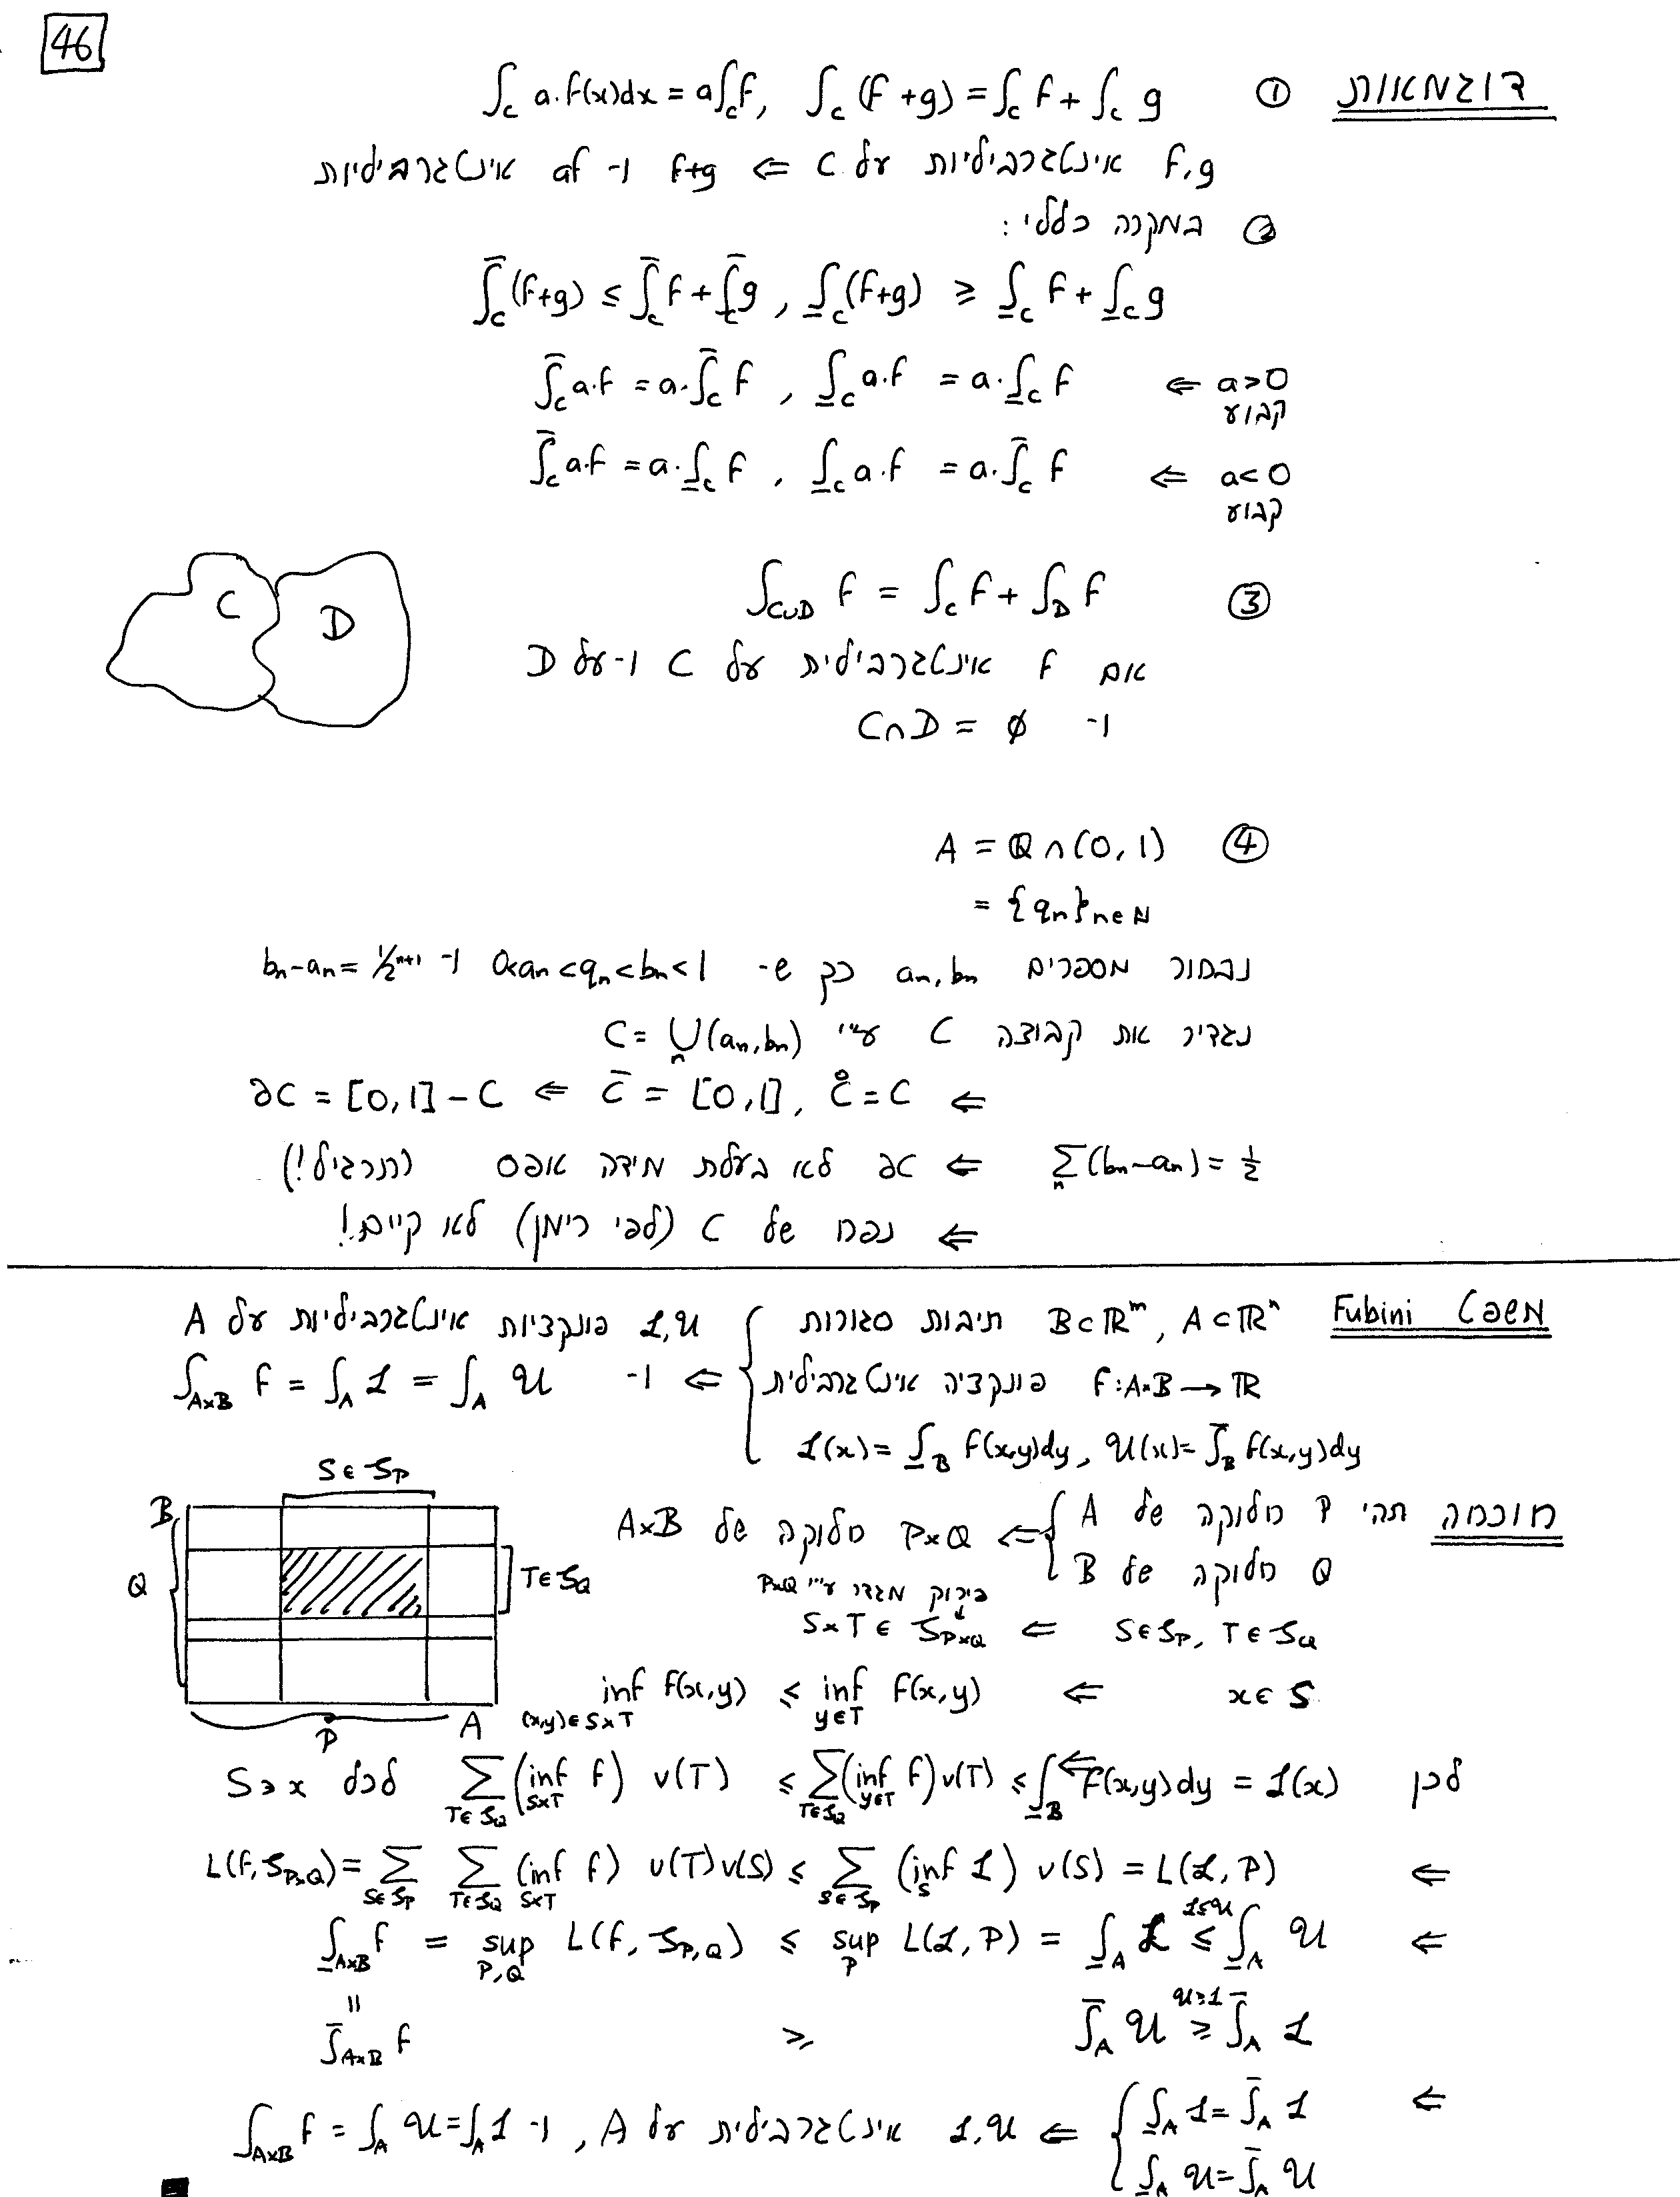 46
דוגמאות ① ∫_C a·f(x)dx = a∫_C f, ∫_C (f+g) = ∫_C f + ∫_C g
f,g אינטגרביליות על C ⇐ f+g ו- af אינטגרביליות
② במקרה כללי:
∫̄_C (f+g) ≤ ∫̄_C f + ∫̄_C g , ∫̲_C (f+g) ≥ ∫̲_C f + ∫̲_C g
a>0 קבוע ⇐ ∫̄_C a·f = a·∫̄_C f , ∫̲_C a·f = a·∫̲_C f
a<0 קבוע ⇐ ∫̄_C a·f = a·∫̲_C f , ∫̲_C a·f = a·∫̄_C f
C D
③ ∫_{C∪D} f = ∫_C f + ∫_D f
אם f אינטגרבילית על C ו-על D
ו- C∩D = ∅
④ A = ℚ∩(0,1)
= {q_n}_{n∈ℕ}
נבחור מספרים a_n, b_n כך ש- 0<a_n<q_n<b_n<1 ו- b_n-a_n = 1/2^{n+1}
נגדיר את קבוצה C ע"י C = ⋃_n (a_n,b_n)
⇐ C̄ = [0,1], C̊ = C ⇐ ∂C = [0,1] - C
Σ_n (b_n-a_n) = 1/2 ⇐ ∂C לא בעלת מידה אפס (תרגיל!)
⇐ נפח של C (לפי רימן) לא קיים!
משפט Fubini A⊂ℝⁿ, B⊂ℝᵐ תיבות סגורות { ℒ,𝒰 פונקציות אינטגרביליות על A
f:A×B→ℝ פונקציה אינטגרבילית ⇐ ו- ∫_{A×B} f = ∫_A ℒ = ∫_A 𝒰
ℒ(x) = ∫̲_B f(x,y)dy, 𝒰(x) = ∫̄_B f(x,y)dy
S∈S_P
B
Q
T∈S_Q
P
A
הוכחה תהי P חלוקה של A { ⇐ P×Q חלוקה של A×B
Q חלוקה של B
פירוק מגדר ע"י P×Q
S∈S_P, T∈S_Q ⇐ S×T∈S_{P×Q}
x∈S ⇐ inf_{(x,y)∈S×T} f(x,y) ≤ inf_{y∈T} f(x,y)
לכן Σ_{T∈S_Q} (inf_{S×T} f) v(T) ≤ Σ_{T∈S_Q} (inf_{y∈T} f) v(T) ≤ ∫̲_B f(x,y)dy = ℒ(x) לכל S∋x
⇐ L(f, S_{P×Q}) = Σ_{S∈S_P} Σ_{T∈S_Q} (inf_{S×T} f) v(T)v(S) ≤ Σ_{S∈S_P} (inf_S ℒ) v(S) = L(ℒ,P)
⇐ ∫̲_{A×B} f = sup_{P,Q} L(f, S_{P,Q}) ≤ sup_P L(ℒ,P) = ∫̲_A ℒ ≤^{ℒ≤𝒰} ∫̲_A 𝒰
=
∫̄_{A×B} f ≥ ∫̄_A 𝒰 ≥^{𝒰≥ℒ} ∫̄_A ℒ
⇐ { ∫̲_A ℒ = ∫̄_A ℒ
∫̲_A 𝒰 = ∫̄_A 𝒰 ⇐ ℒ,𝒰 אינטגרבילית על A, ו- ∫_{A×B} f = ∫_A 𝒰 = ∫_A ℒ